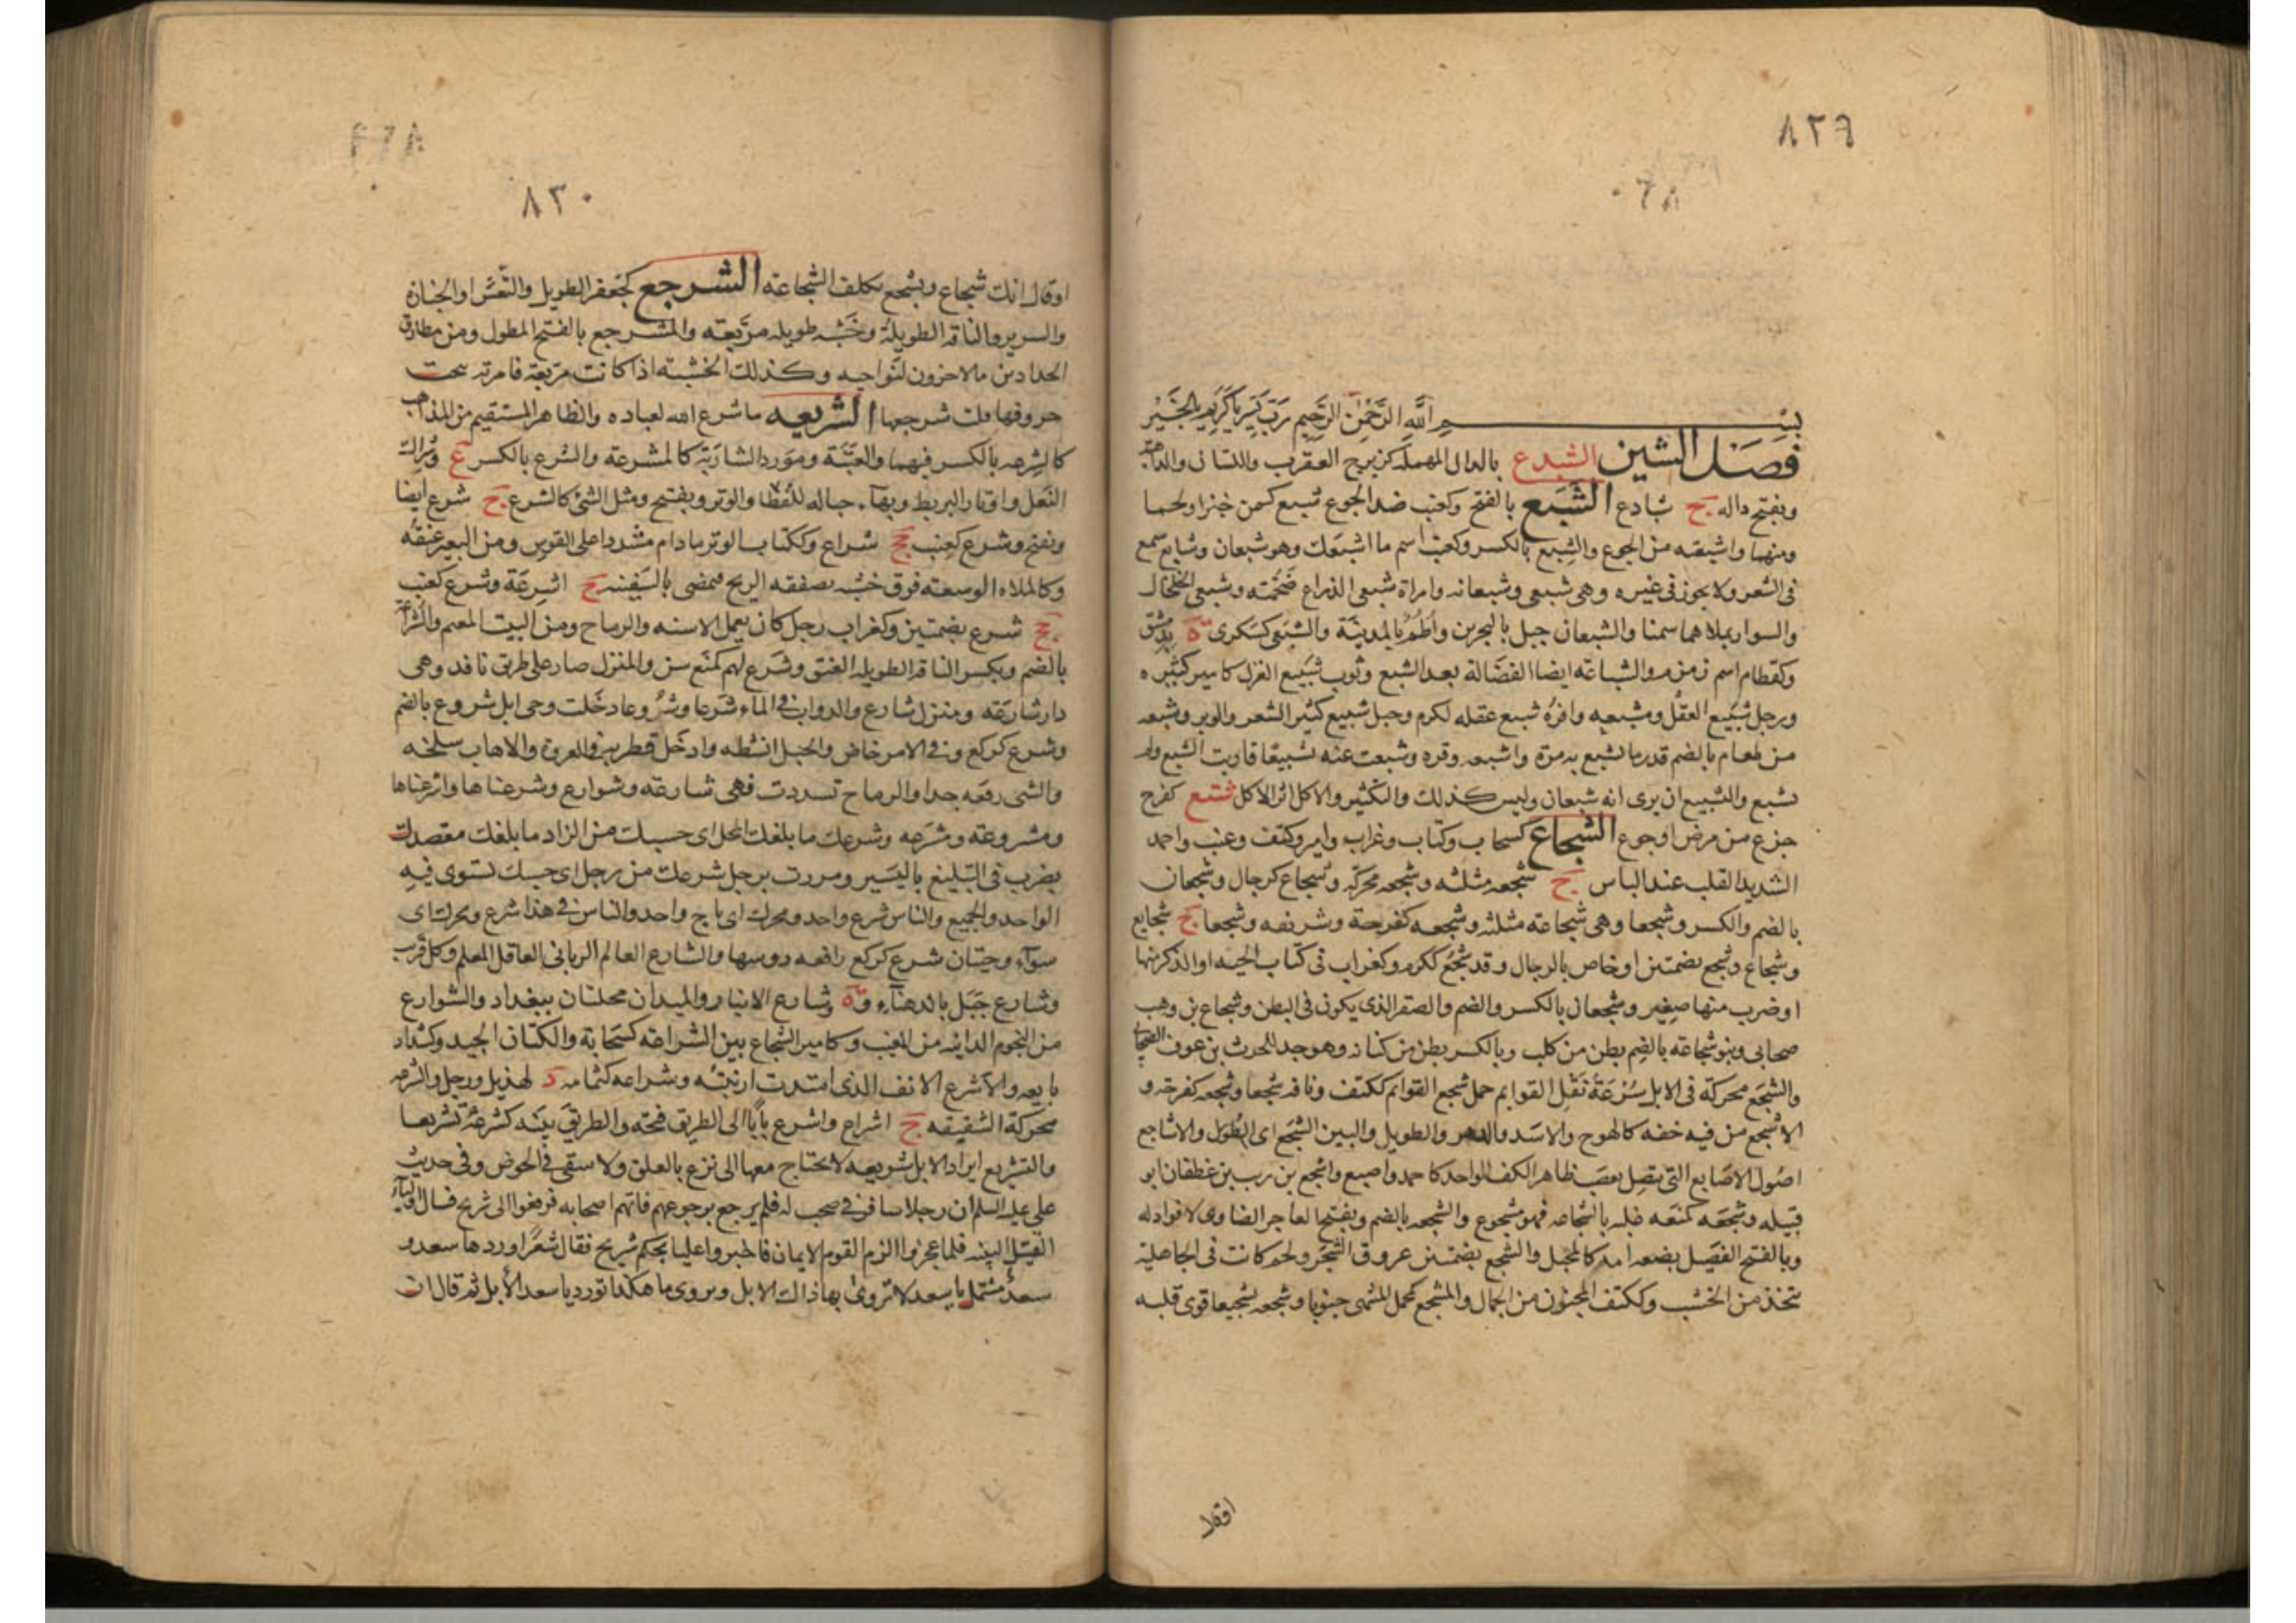 ٨٢٩
بسم الله الرحمن الرحيم رب يسر يا كريم بالخير
فصل الشين الشبدع بالدال المهملة كزبرج العقرب واللسان والداهية
وبفتح داله ج شبادع الشبع بالفتح وكعنب ضد الجوع شبع كسمن خبزا ولحما
ومنهما واشبعته من الجوع والشبع بالكسر وكعنب اسم ما اشبعك وهو شبعان وشابع سمع
فى الشعر ولا يجوز فى غيره وهى شبعى وشبعانه وامراة شبعى الذراع ضخمته وشبعى الخلخال
والسوار يملاهما سمنا والشبعان جبل بالبحرين واطم بالمدينة والشبعى كسكرى ة بدمشق
وكقطام اسم زمزم والشباعه ايضا الفضالة بعد الشبع وثوب شبيع الغزل كامير كثيره
ورجل شبيع العقل ومشبعه وافره شبع عقله لكرم وحبل شبيع كثير الشعر والوبر وشبعه
من طعام بالضم قدر ما يشبع به مرة واشبعه وفره وشبعت غنمه تشبيعا قاربت الشبع ولم
تشبع والتشبع ان يرى انه شبعان وليس كذلك والتكثر والاكل اثر الاكل شتع كفرح
جزع من مرض او جوع الشجاع كسحاب وكتاب وغراب وامير وكتف وعنب واحمد
الشديد القلب عند الباس ج شجعه مثلثه وشجعه محركه وشجاع كرجال وشجعان
بالضم والكسر وشجعا وهى شجاعة مثلثه وشجعه كفرحة وشريفه وشجعا ج شجايع
وشجاع وشجع بضمتين او خاص بالرجال وقد شجع ككرم وكغراب فى كتاب الحيه او الذكر منها
او ضرب منها صغير وشجعان بالكسر والضم والصقر الذى يكون فى البطن وشجاع بن وهب
صحابى وبنو شجاعة بالضم بطن من كلب وبالكسر بطن من كنانه وهو جد الحرث بن عوف الصحابى
والشجع محركة فى الابل سرعة نقل القوايم جمل شجع القوايم ككتف وناقه شجعا وشجعه كفرحه و
الاشجع من فيه خفه كالهوج والاسد والدهر والطويل والبين الشجع اى الطول والاشاجع
اصول الاصابع التى يتصل بعصب ظاهر الكف الواحد كاحمد واصبع واشجع بن ريث بن غطفان ابو
قبيله وشجعه كمنعه غلبه بالشجاعه فهو مشجوع والشجعه بالضم ويفتح العاجز الضاوى لا فواد له
وبالفتح الفصيل بضعه امه كالمخبل والشجع بضمتين عروق الشجر ولجم كانت فى الجاهلية
تتخذ من الخشب وككتف المجنون من الجمال والمشجع كمجمل المنتهى جنونا وشجعه تشجيعا قوى قلبه
٨٣٠
او قال انك شجاع وتشجع تكلف الشجاعة الشرجع كجعفر الطويل والنعش او الجنازة
والسرير والناقه الطويلة وخشبه طويله مربعه والمشرجع بالفتح المطول ومن مطارق
الحدادين ما لا حزون لنواحيه وكذلك الخشبة اذا كانت مربعة فامرته بنحت
حروفها قلت شرجعها الشريعه ما شرع الله لعباده والظاهر المستقيم من المذاهب
كالشرعه بالكسر فيهما والعتبة ومورد الشاربة كالمشرعه والشرع بالكسر ع وشراك
النعل واوتار البربط وبهاء حباله للقطا والوتر ويفتح ومثل الشئ كالشرع ج شرع ايضا
ويفتح وشرع كعنب جج شراع وككتاب الوتر ما دام مشددا على القوس ومن البعير عنقه
وكالملاه الوسعة فوق خشبه تصفقه الريح فيمضى بالسفينه ج اشرعة وشرع كعنب
ج شرع بضمتين وكغراب رجل كان يعمل الاسنه والرماح ومن البيت المعم والشراعيه
بالضم ويكسر الناقه الطويله العنق وشرع لهم كمنع سن والمنزل صار على طريق نافد وهى
دار شارعه ومنزل شارع والدواب فى الماء شرعا وشروعا دخلت وهى ابل شروع بالضم
وشرع كركع وفى الامر خاض والحبل انشطه وادخل قطريه فى العروة والاهاب سلخه
والشى رفعه جدا والرماح تسددت فهى شارعه وشوارع وشرعناها واشرعناها
ومشروعه ومشرعه وشرعك ما بلغك المحل اى حسبك من الزاد ما بلغك مقصدك
يضرب فى التبليغ باليسير ومررت برجل شرعك من رجل اى حسبك تستوى فيه
الواحد والجميع والناس شرع واحد ومحرك اى باج واحد والناس فى هذا شرع ومحرك اى
سواء وحيتان شرع كركع رافعه روسها والشارع العالم الربانى العاقل المعلم وكل قريب
وشارع جبل بالدهناء وة وشارع الانبار والميدان محلتان ببغداد والشوارع
من النجوم الدانيه من المغيب وكامير الشجاع بين الشراعه كسحابة والكتان الجيد وكشداد
بايعه والاشرع الانف الذى امتدت ارنبته وشراعه كثمامه د لهذيل ورجل والشرعه
محركة الشقيقه ج اشراع واشرع بابا الى الطريق فتحه والطريق بينه كشرعه تشريعا
والتشريع ايراد الابل شريعه لا يحتاج معها الى نزع بالعلق ولا سقى فى الحوض وفى حديث
على عليه السلم ان رجلا سافر فى صحب له فلم يرجع برجوعهم فاتهم اصحابه فرفعوا الى شريح فسال اولياء
القتيل البينه فلما عجزوا الزم القوم الايمان فاخبروا عليا بحكم شريح فقال شعرا اوردها سعد و
سعد مشتمل يا سعد لا تروى بهاذاك الابل ويروى ما هكذا تورد يا سعد الابل ثم قال ان